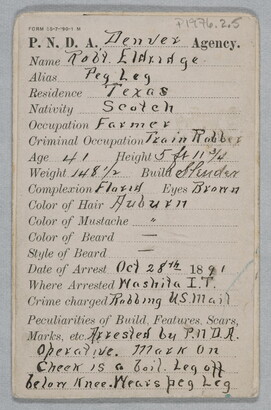 FORM 10-7-90-1 M
P1976.2.5
P. N. D. A., Denver Agency.
Name Robt. Eldridge
Alias Peg Leg
Residence Texas
Nativity Scotch
Occupation Farmer
Criminal Occupation Train Robber
Age 41 Height 5 ft 11 3/4
Weight 148 1/2 Build Slender
Complexion Florid Eyes Brown
Color of Hair Auburn
Color of Mustache "
Color of Beard —
Style of Beard —
Date of Arrest Oct 28th 1891
Where Arrested Washita I.T.
Crime charged Robbing U.S. Mail
Peculiarities of Build, Features, Scars,
Marks, etc. Arrested by P.N.D.A.
Operative. Mark on
Cheek is a boil. Leg off
below Knee. Wears peg Leg